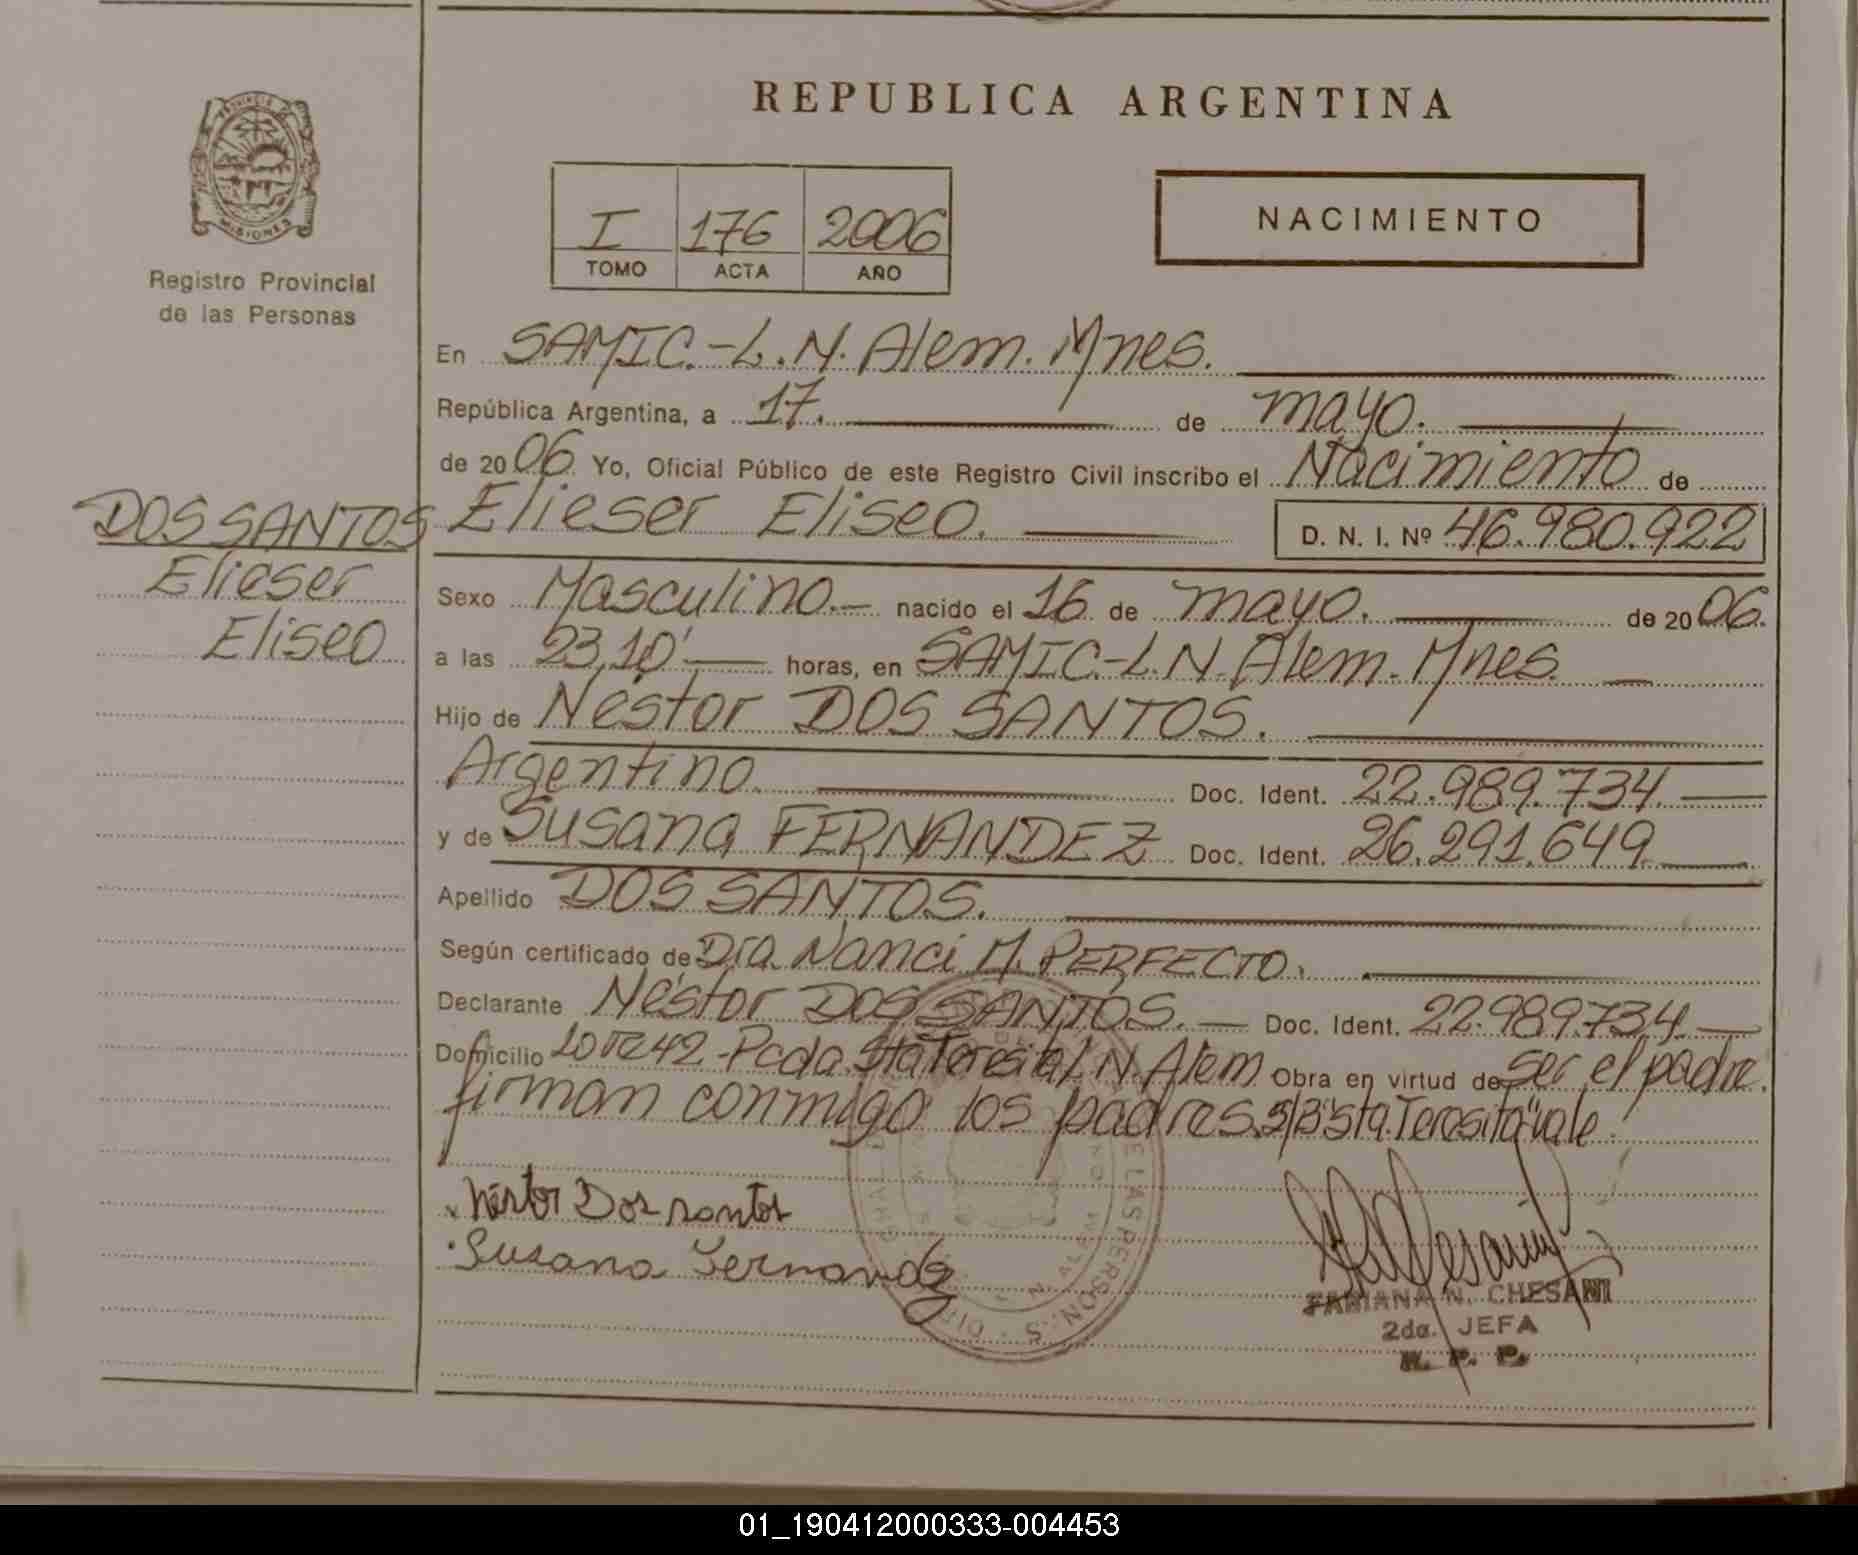 REPUBLICA ARGENTINA
PROVINCIA DE
MISIONES
Registro Provincial
de las Personas
I 176 2006
TOMO ACTA AÑO
NACIMIENTO
En SAMIC.-L.N. Alem. Mnes.
República Argentina, a 17. de mayo.
de 2006 Yo, Oficial Público de este Registro Civil inscribo el Nacimiento de
DOS SANTOS
Elieser
Eliseo
Elieser Eliseo. D. N. I. Nº 46.980.922
Sexo Masculino.- nacido el 16 de mayo. de 2006.
a las 23,10' horas, en SAMIC.-L.N. Alem. Mnes.
Hijo de Néstor DOS SANTOS.
Argentino. Doc. Ident. 22.989.734.
y de Susana FERNANDEZ Doc. Ident. 26.291.649
Apellido DOS SANTOS.
Según certificado de Dra. Nanci M. PERFECTO.
Declarante Néstor DOS SANTOS. Doc. Ident. 22.989.734
Domicilio Lote 42-Pcda. Sta Teresita L.N. Alem Obra en virtud de ser el padre.
firman conmigo los padres. S/B "Sta. Teresita" vale.
Néstor Dos santos
Susana Fernandez
FABIANA N. CHESANI
2da. JEFA
R. P. P.
01_190412000333-004453